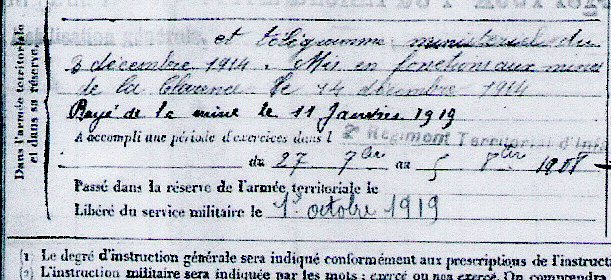 et télégramme ministériel du
3 décembre 1914. Mis en fonctions aux mines
de la Clarence le 14 décembre 1914
Rayé de la mine le 11 Janvier 1919
A accompli une période d'exercices dans l Régiment Territorial d'Inf
du 27 7bre au 5 8bre 1908
Passé dans la réserve de l'armée territoriale le
Libéré du service militaire le 1er octobre 1919
Dans l'armée territoriale
et dans sa réserve
(1) Le degré d'instruction générale sera indiqué conformément aux prescriptions de l'instruct
(2) L'instruction militaire sera indiquée par les mots : exercé ou non exercé. On comprendra